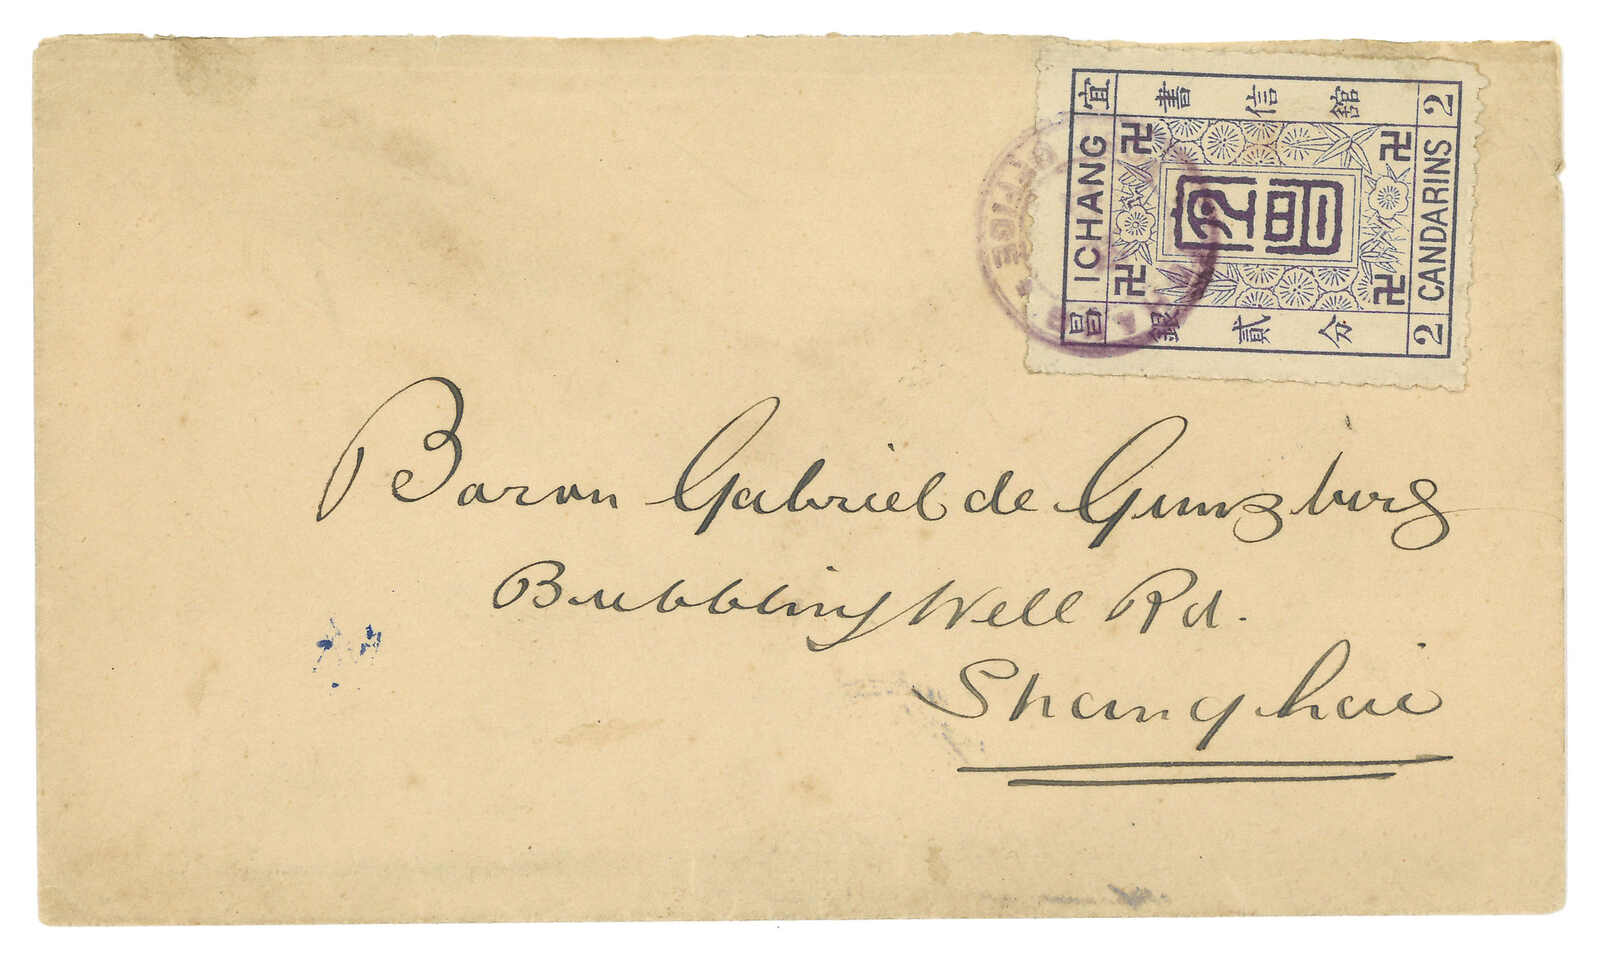 宜 書信館 2
ICHANG
宜昌
CANDARINS
昌 銀貳分 2
OFFICE
Baron Gabriel de Gunzburg
Bubbling Well Rd.
Shanghai